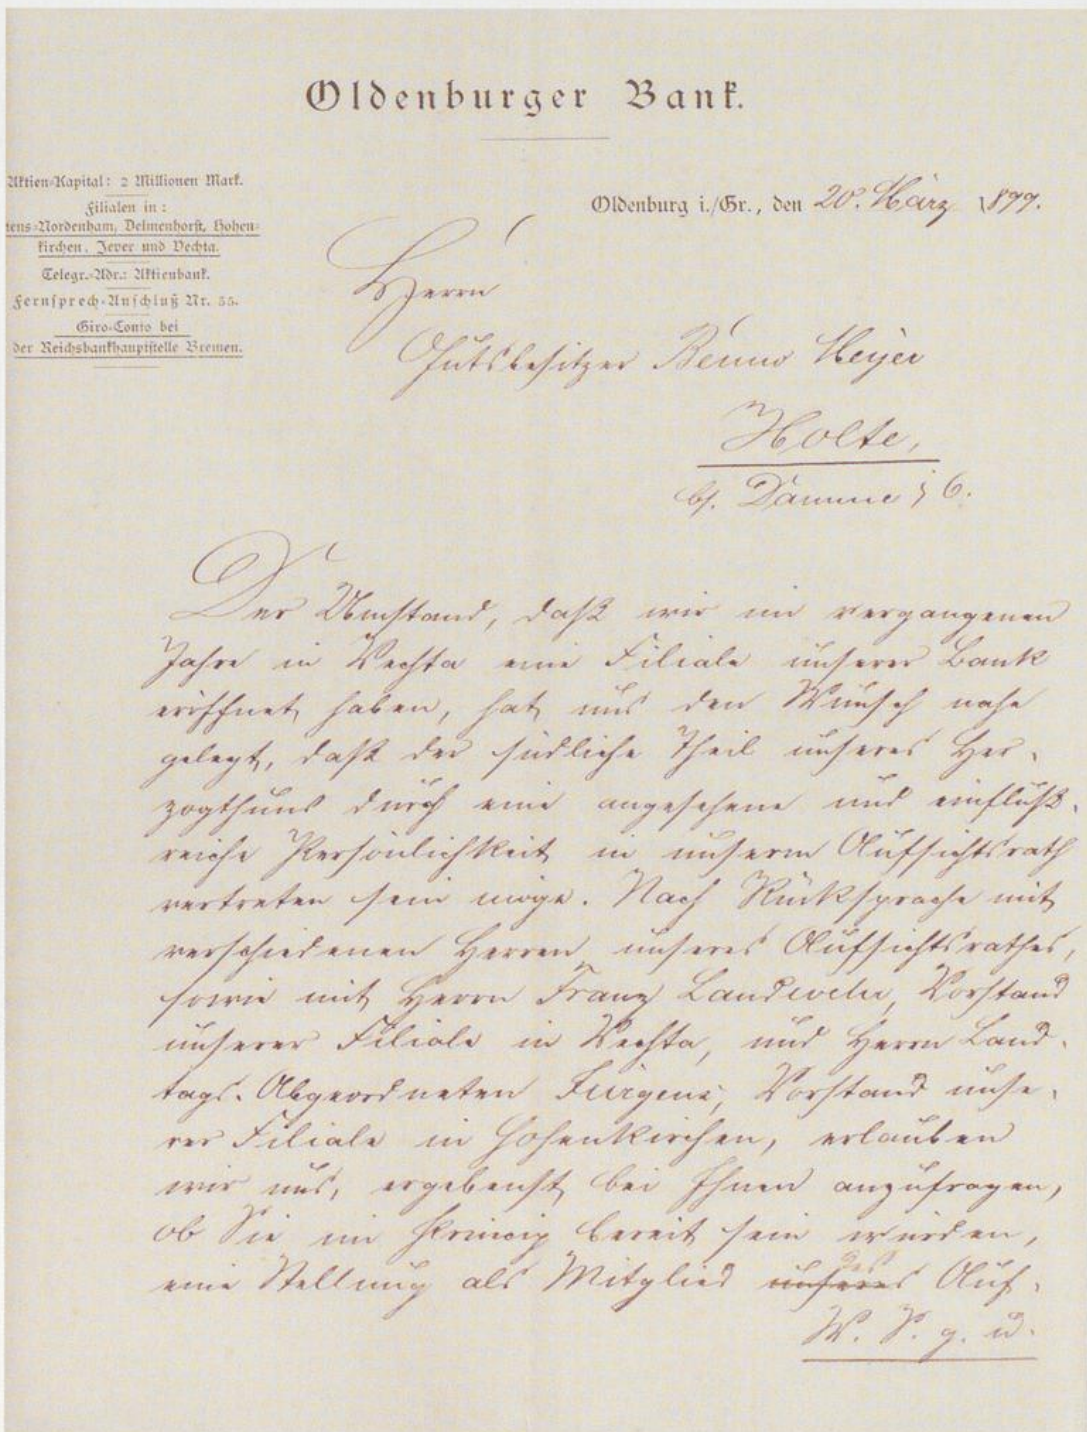 Oldenburger Bank.
Aktien-Kapital: 2 Millionen Mark.
Filialen in:
tens-Nordenham, Delmenhorst, Hohen-
kirchen, Jever und Vechta.
Telegr.-Adr.: Aktienbank.
Fernsprech-Anschluß Nr. 55.
Giro-Conto bei
der Reichsbankhauptstelle Bremen.
Oldenburg i./Gr., den 20. März 1899.
Herrn
Gutsbesitzer Benno Meyer
Holte,
b/. Damme
Der Umstand, daß wir im vergangenen
Jahre in Vechta eine Filiale unserer Bank
eröffnet haben, hat uns den Wunsch nahe
gelegt, daß der südliche Theil unseres Her-
zogthums durch eine angesehene und einfluß-
reiche Persönlichkeit in unserm Aufsichtsrath
vertreten sein möge. Nach Rücksprache mit
verschiedenen Herren unseres Aufsichtsrathes,
sowie mit Herrn Franz Landwehr, Vorstand
unserer Filiale in Vechta, und Herrn Land-
tags-Abgeordneten Jürgens, Vorstand unse-
rer Filiale in Hohenkirchen, erlauben
wir uns, ergebenst bei Ihnen anzufragen,
ob Sie im Princip bereit sein würden,
eine Stellung als Mitglied unseres des Auf-
W. S. g. u.